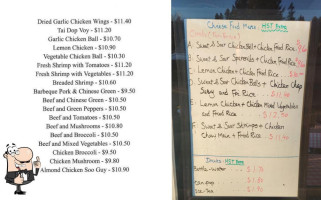 Dried Garlic Chicken Wings - $11.40
Tai Dop Voy - $11.20
Garlic Chicken Ball - $10.70
Lemon Chicken - $10.90
Vegetable Chicken Ball - $10.30
Fresh Shrimp with Tomatoes - $11.20
Fresh Shrimp with Vegetables - $11.20
Breaded Shrimp - $10.60
Barbeque Pork & Chinese Green - $9.50
Beef and Chinese Green - $10.50
Beef and Green Peppers - $10.50
Beef and Tomatoes - $10.50
Beef and Mushrooms - $10.80
Beef and Broccoli - $10.50
Beef and Mixed Vegetables - $10.50
Chicken Broccoli - $9.50
Chicken Mushroom - $9.80
Almond Chicken Soo Guy - $10.90
Chinese Food Menu HST Extra
A. Sweet & Sour Chicken Ball + Chicken Fried Rice
B. Sweet & Sour Spareribs + Chicken Fried Rice
C. Lemon Chicken + Chicken Fried Rice
D. Sweet & Sour Chicken Balls + Chicken Chop
Suey and Fried Rice
E. Lemon Chicken + Chicken Mixed Vegetables
and Fried Rice
F. Sweet & Sour Shrimps + Chicken
Chow Mein + Fried Rice
Drinks HST Extra